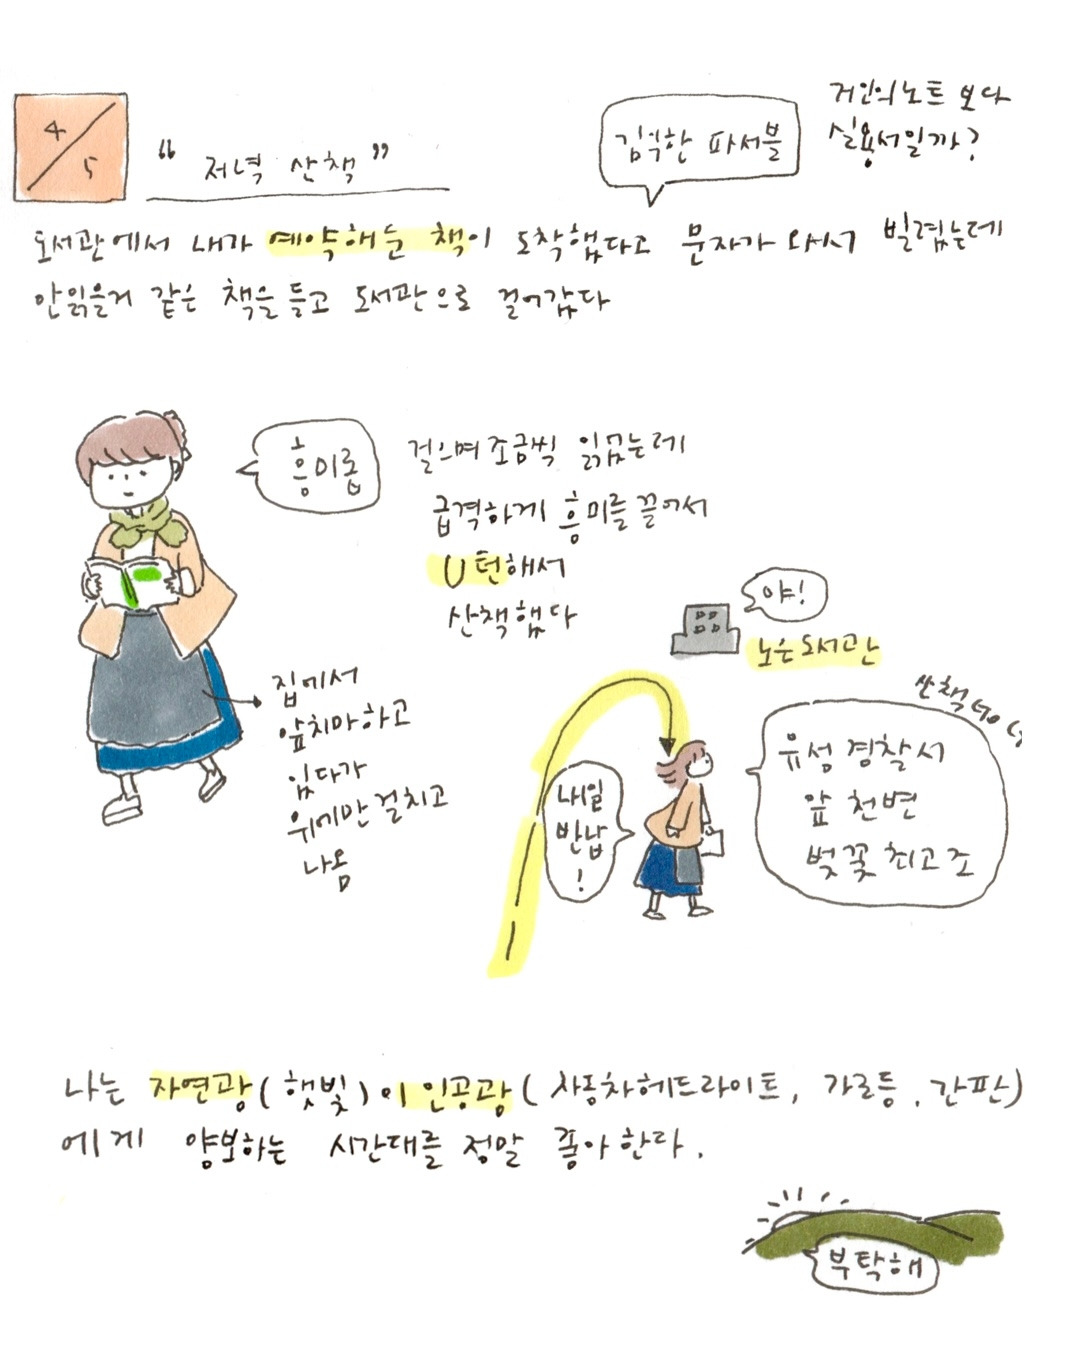 4/5
" 저녁 산책 "
김익한 파서블
거인의노트 보다
실용서일까?
도서관에서 내가 예약해둔 책이 도착했다고 문자가 와서 빌렸는데
안읽을거 같은 책을 들고 도서관으로 걸어갔다
흥미롭
걸으며 조금씩 읽었는데
급격하게 흥미를 끌어서
U턴해서
산책했다
야!
노은도서관
집에서
앞치마하고
있다가
위에만 걸치고
나옴
내일
반납
!
산책 GO
유성경찰서
앞 천변
벚꽃 최고조
나는 자연광(햇빛)이 인공광(자동차헤드라이트, 가로등, 간판)
에게 양보하는 시간대를 정말 좋아한다.
부탁해